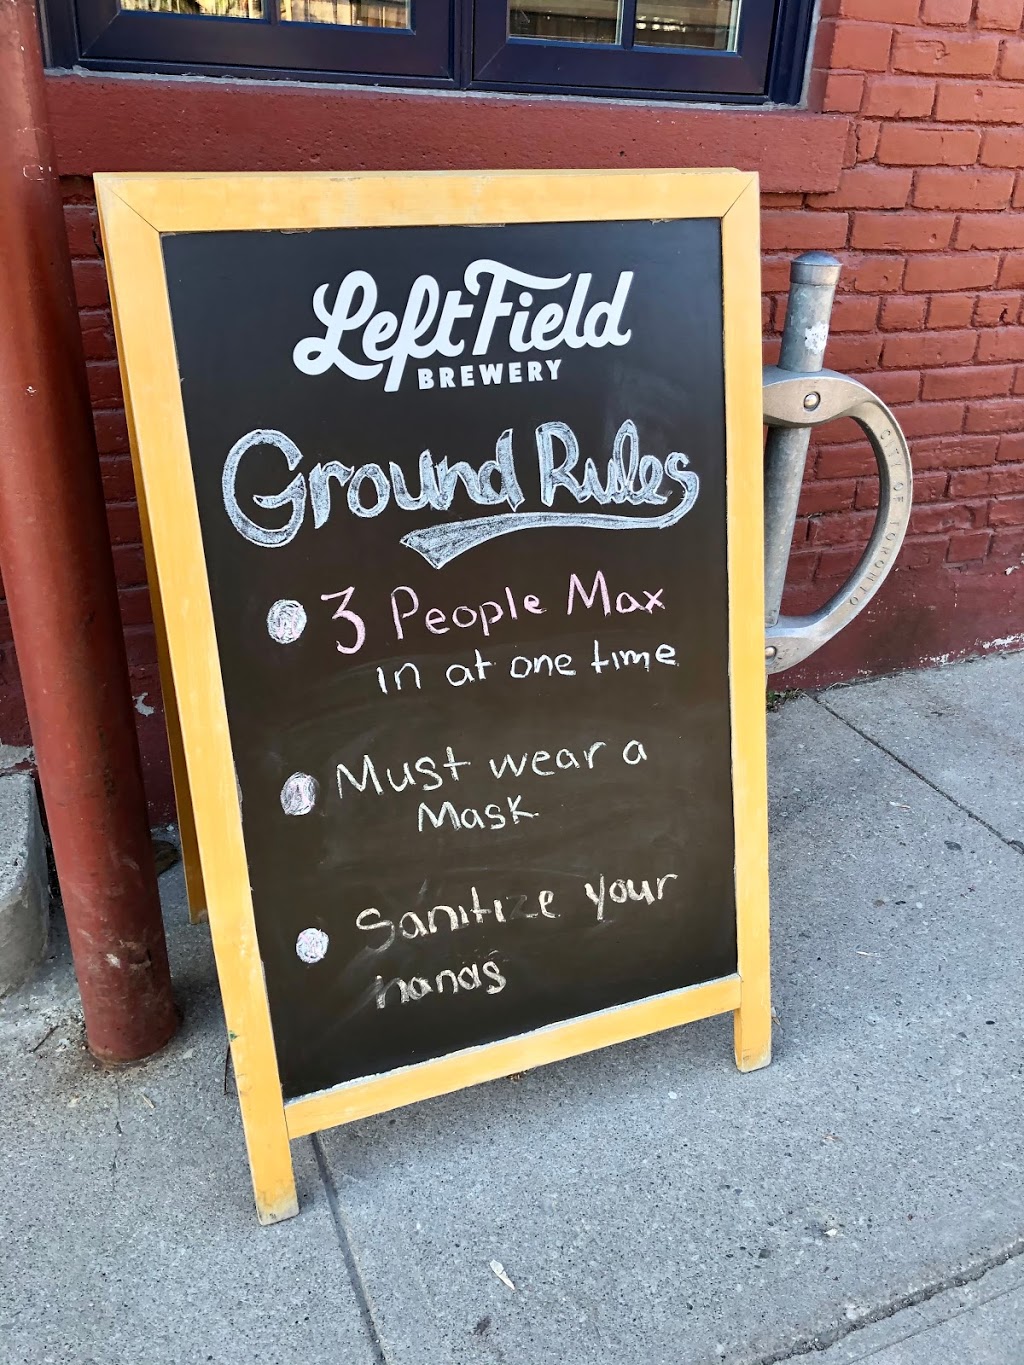 Left Field
BREWERY
Ground Rules
3 People Max
in at one time
Must wear a
Mask
Sanitize your
hands
CITY OF TORONTO